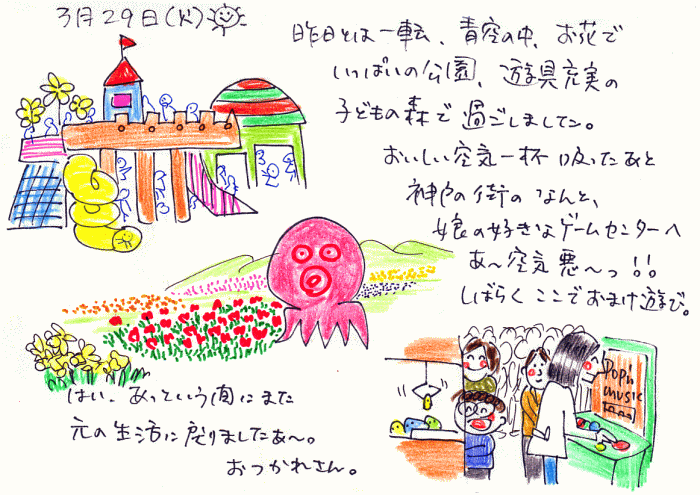 3月29日(火)
昨日とは一転、青空の中、お花で
いっぱいの公園、遊具充実の
子どもの森で過ごしました。
おいしい空気一杯吸ったあと
神戸の街のなんと、
娘の好きなゲームセンターへ
あ〜空気悪〜っ!!
しばらくここでおまけ遊び。
Pop'n
music
はい、あっという間にまた
元の生活に戻りましたあ〜。
おつかれさん。